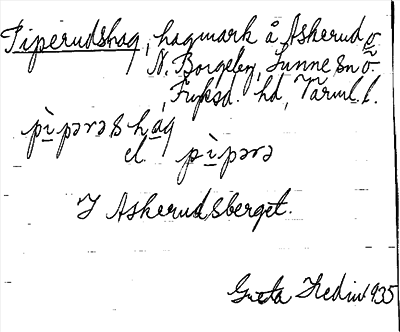 Piperudshag, hagmark å Askerud o.
N. Borgeby, Sunne sn o.
, Fryksd. hd, Värml. l.
pìpərəshàg
el pìpərə
I Askerudsberget.
Greta Hedin 1935